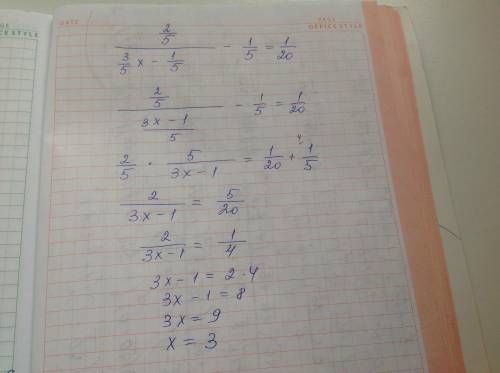 DATE
PAGE
OFFICE STYLE
OFFICE STYLE
(2/5)/(3/5 x - 1/5) - 1/5 = 1/20
(2/5)/((3x - 1)/5) - 1/5 = 1/20
2/5 · 5/(3x - 1) = 1/20 + 1/5 4
2/(3x - 1) = 5/20
2/(3x - 1) = 1/4
3x - 1 = 2 · 4
3x - 1 = 8
3x = 9
x = 3